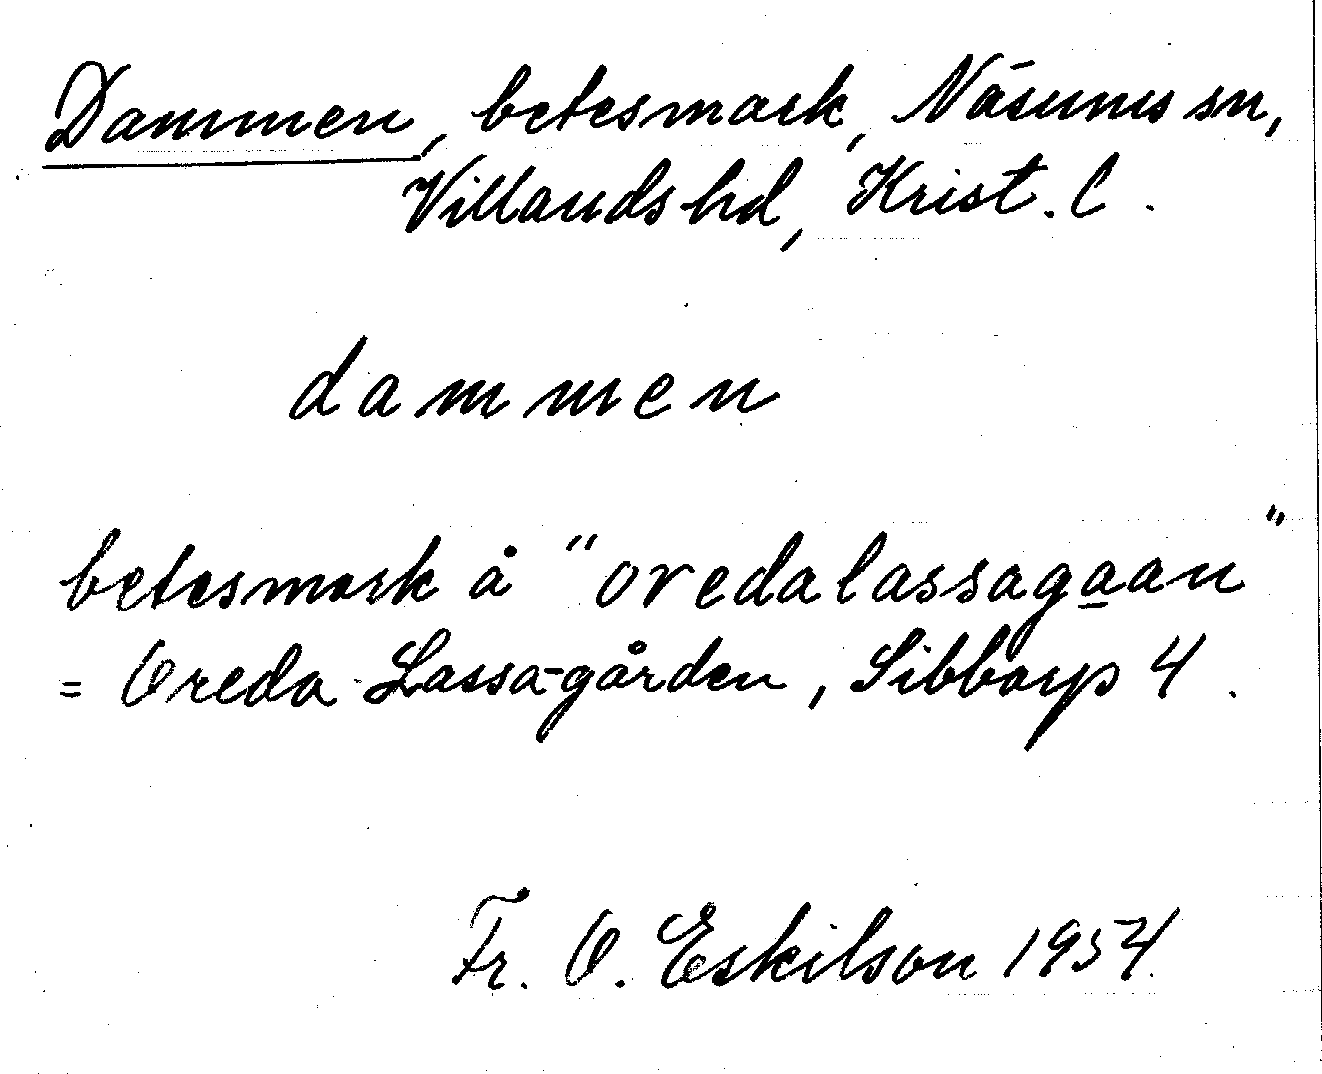 Dammen, betesmark, Näsums sn,
Villands hd, Krist. l.
dammen
betesmark å "oredalassagaan"
= Oreda Lassa-gården, Sibbarp 4.
Fr. O. Eskilson 1954.